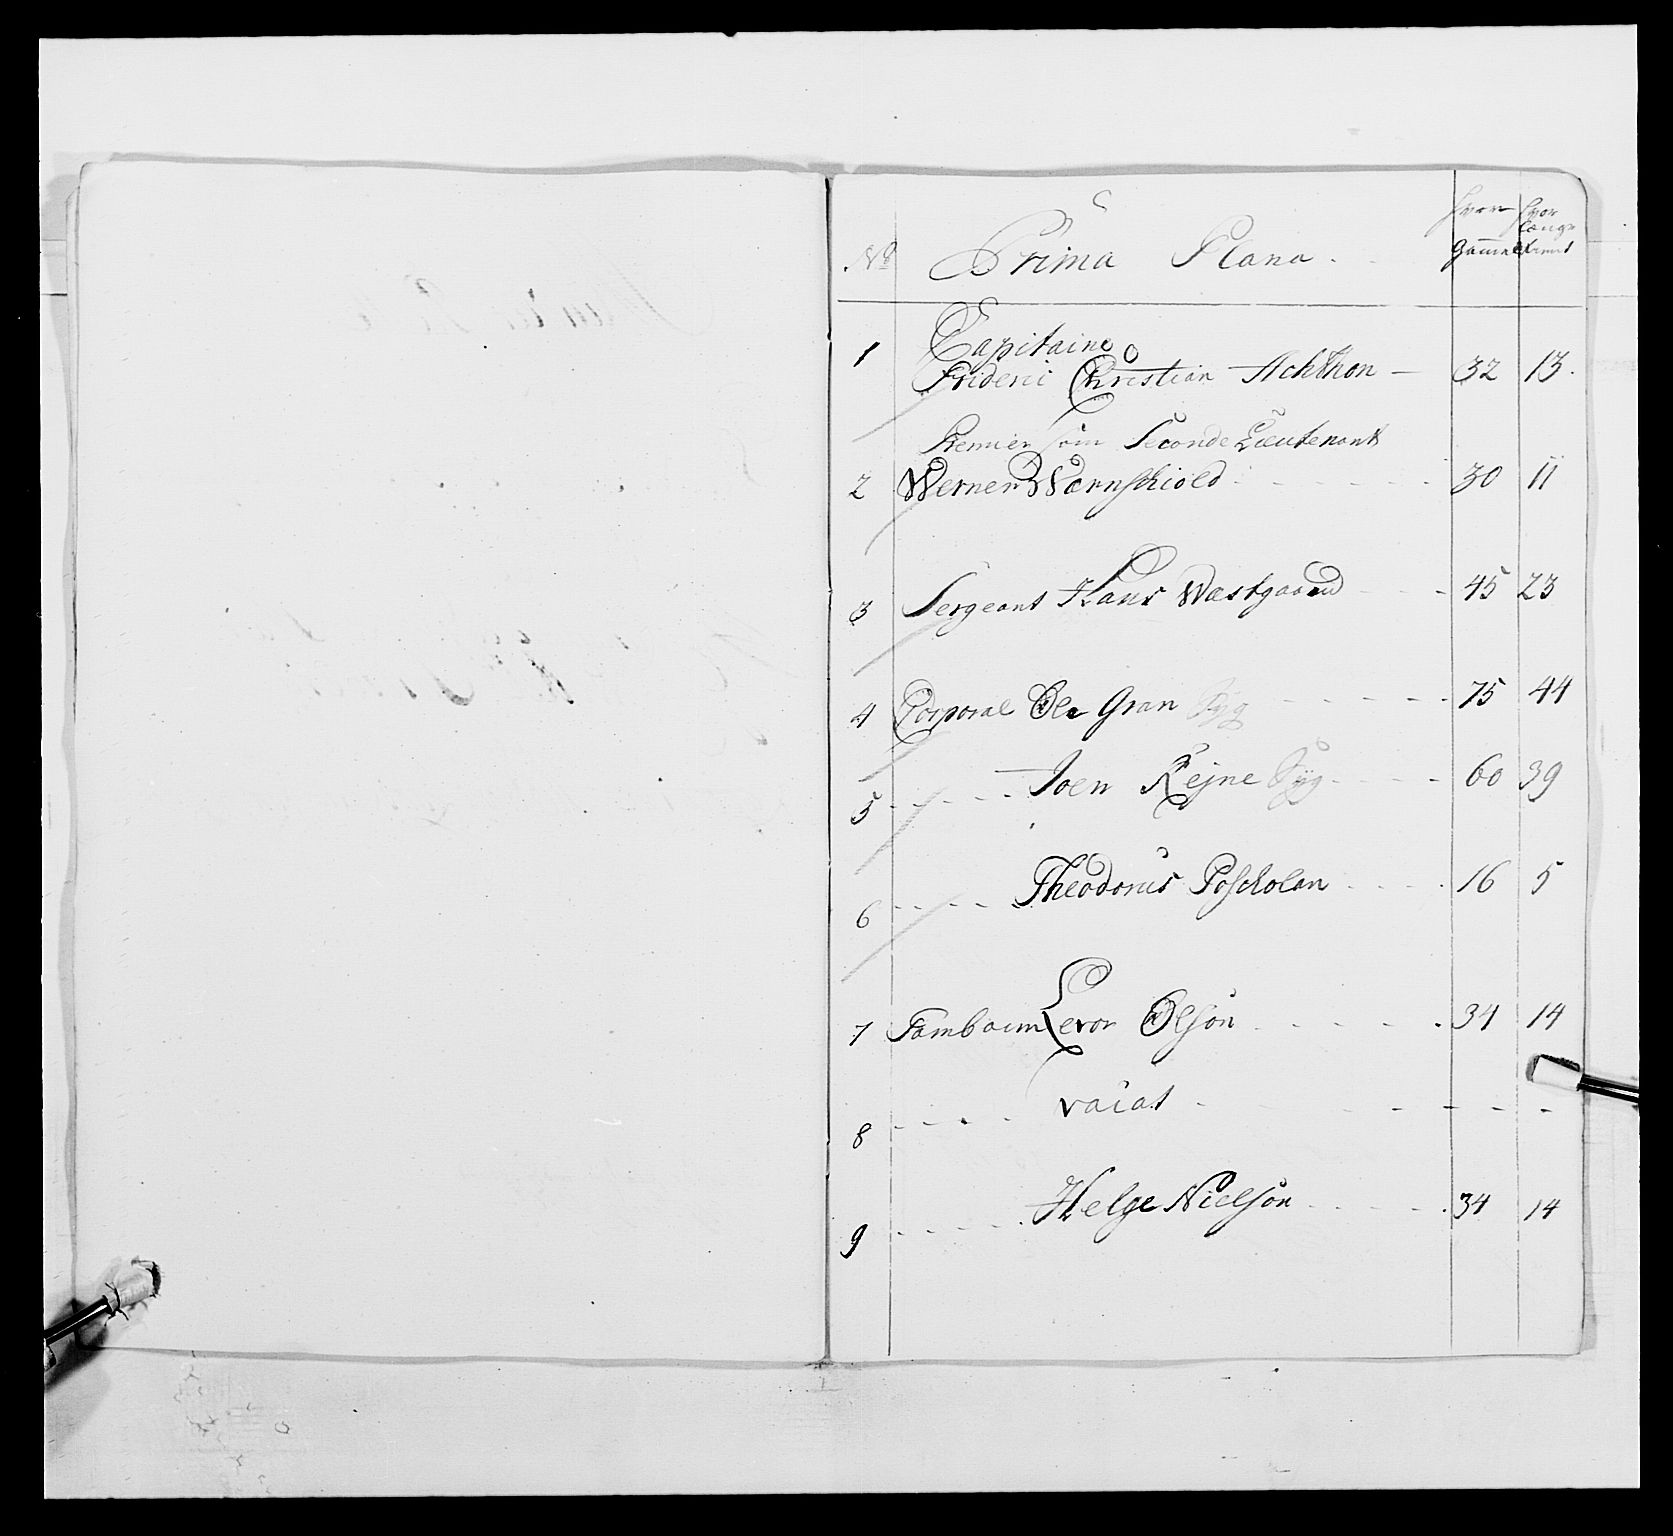 No Prima Plana
hvor Gammel
hvor længe tient
1 Capitaine
Frideric Christian Achthon 32 13.
Premier som Seconde Lieutenant
2 Werner Wærnskiold 30 11
3 Sergeant Hans Wæstgaard 45 23
4 Corporal Ole Gran Syg 75 44
5 Joen Rejne Syg 60 39
6 Theodorus Poscholan 16 5
7 Tambour Evor Olsøn 34 14
8 vacat
9 Helge Nielsøn 34 14